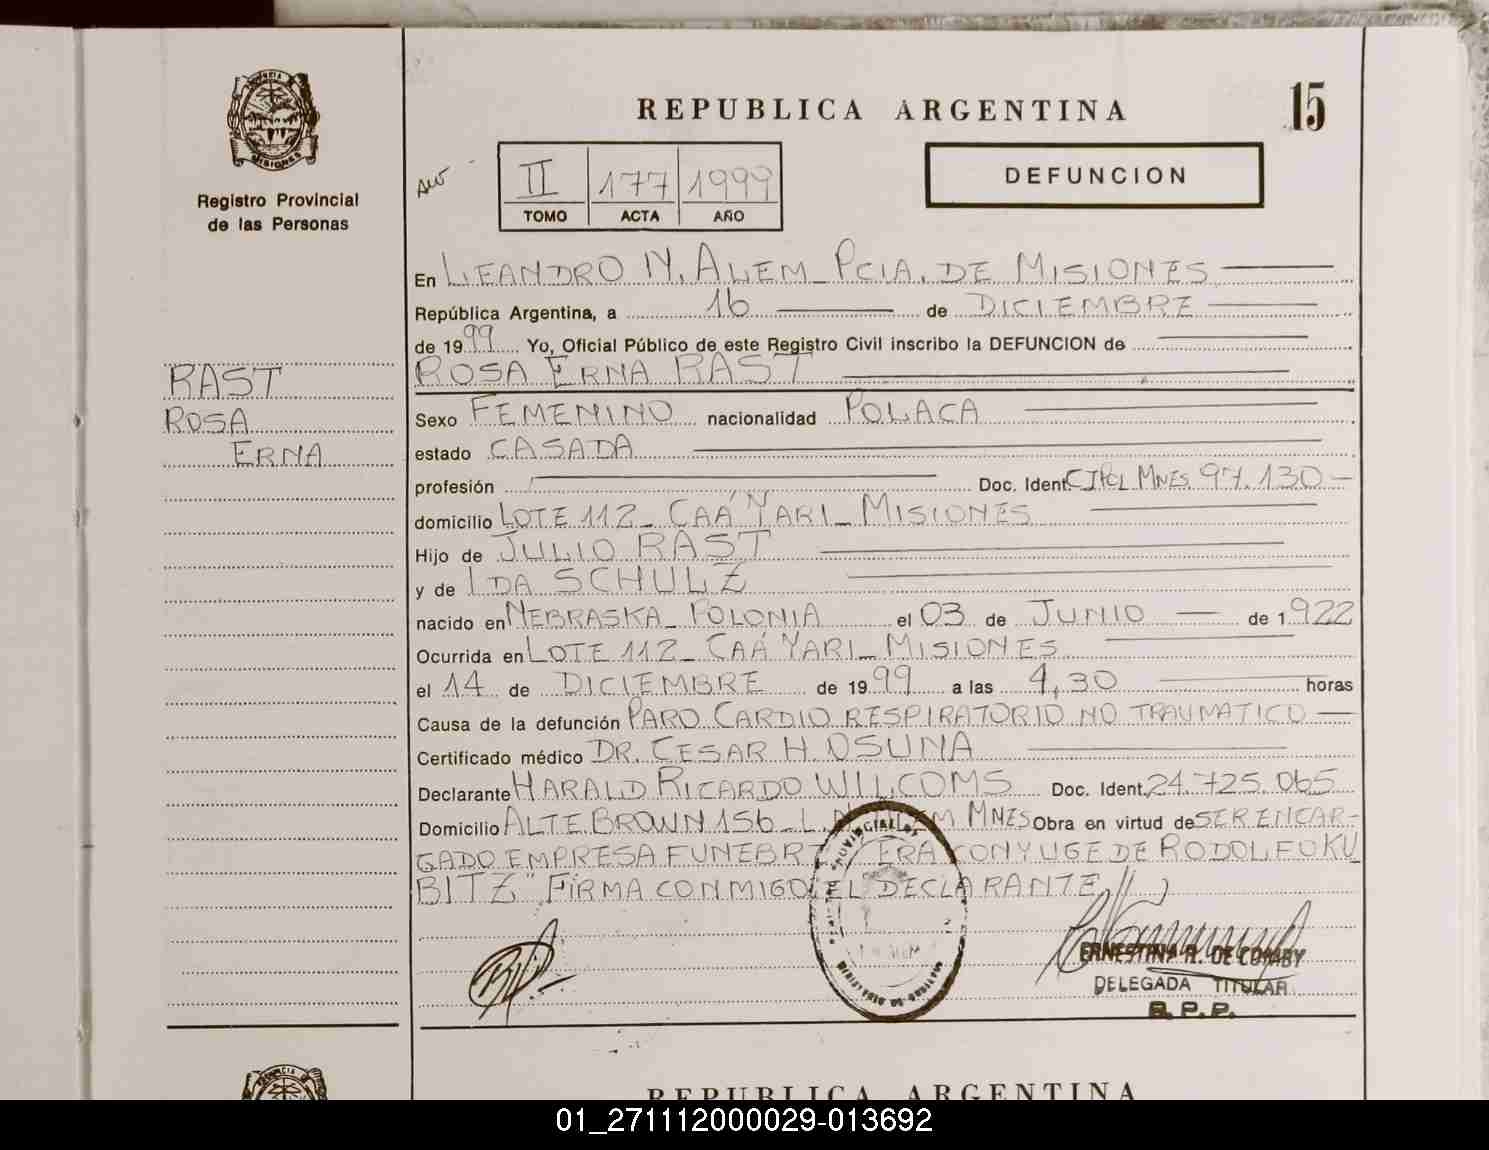 PROVINCIA DE
MISIONES
Registro Provincial
de las Personas
RAST
ROSA
ERNA
REPUBLICA ARGENTINA
15
II 177 1999
TOMO ACTA AÑO
DEFUNCION
En LEANDRO N. ALEM_PCIA. DE MISIONES
República Argentina, a 16 de DICIEMBRE
de 1999 Yo, Oficial Público de este Registro Civil inscribo la DEFUNCION de
ROSA ERNA RAST
Sexo FEMENINO nacionalidad POLACA
estado CASADA
profesión Doc. Ident. CIPCL MNES. 97.130-
domicilio LOTE 112_ CAÁ YARI_ MISIONES
Hijo de JULIO RAST
y de IDA SCHULZ
nacido en NEBRASKA_ POLONIA el 03 de JUNIO de 1922
Ocurrida en LOTE 112_ CAÁ YARI_ MISIONES
el 14 de DICIEMBRE de 1999 a las 4,30 horas
Causa de la defunción PARO CARDIO RESPIRATORIO NO TRAUMATICO
Certificado médico DR. CESAR H. OSUNA
Declarante HARALD RICARDO WILCOMS Doc. Ident. 24.725.065
Domicilio ALTE BROWN 156_ L. N. ALEM MNES Obra en virtud de SER ENCAR-
GADO EMPRESA FUNEBRE "ERA CONYUGE DE RODOLFO KU
BITZ" FIRMA CONMIGO EL DECLARANTE
ERNESTINA R. DE COMABY
DELEGADA TITULAR
R. P. P.
REPUBLICA ARGENTINA
01_271112000029-013692